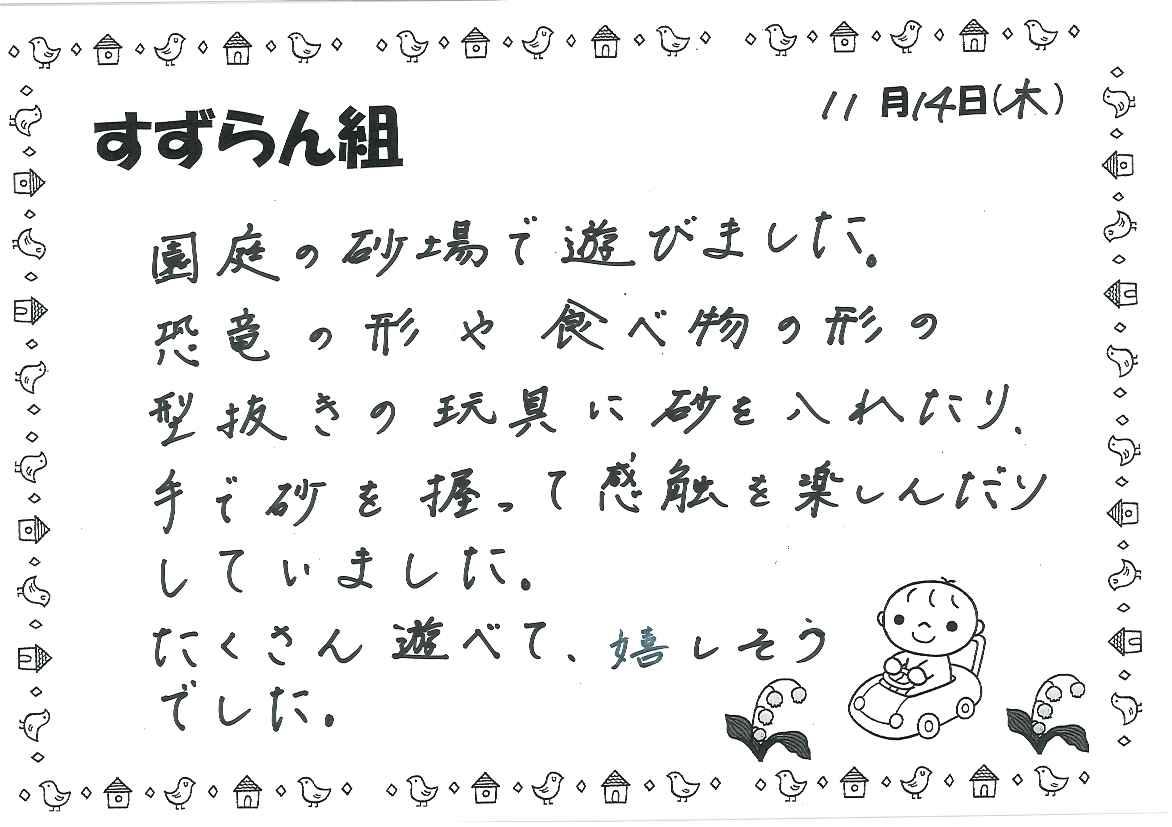 すずらん組
11月14日(木)
園庭の砂場で遊びました。
恐竜の形や食べ物の形の
型抜きの玩具に砂を入れたり、
手で砂を握って感触を楽しんだり
していました。
たくさん遊べて、嬉しそう
でした。